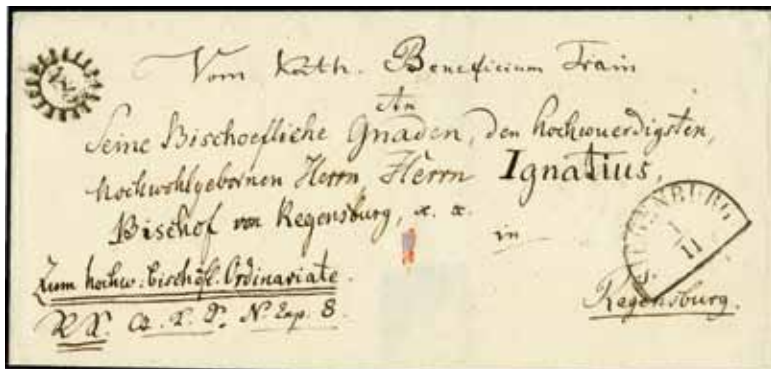 Vom Kath. Beneficium Train
An
Seine Bischoefliche Gnaden, den hochwuerdigsten,
hochwohlgebornen Herrn, Herrn Ignatius,
Bischof von Regensburg, x. x.
in
Regensburg.
Zum hochw. bischöfl. Ordinariate.
N Exp. 8.
1
11